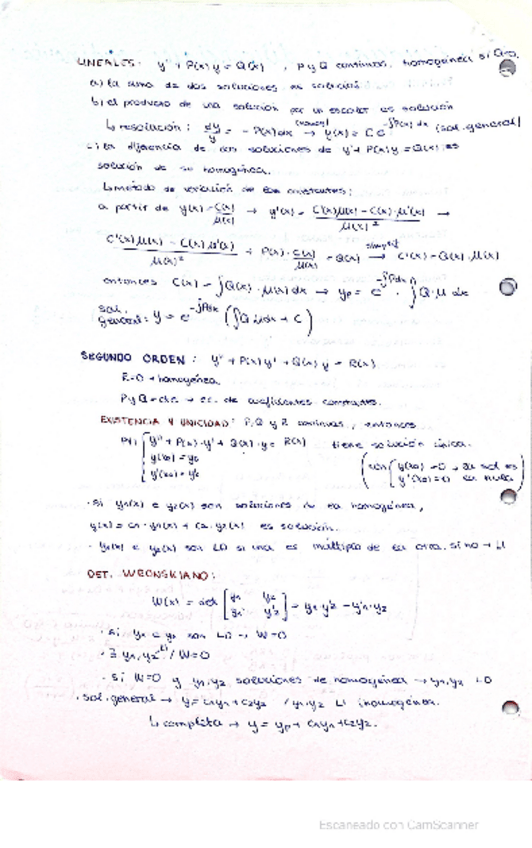 LINEALES: y' + P(x) y = Q(x) , P y Q continuas. homogénea si Q=0.
a) la suma de dos soluciones es solución
b) el producto de una solución por un escalar es solución
↳ resolución: dy/y = - P(x) dx → y(x) = C e^{-∫P(x) dx} (sol. general)
c) la diferencia de dos soluciones de y' + P(x) y = Q(x) es
solución de su homogénea.
↳ método de variación de las constantes:
a partir de y(x) = C(x)/μ(x) → y'(x) = (C'(x)μ(x) - C(x)·μ'(x))/μ(x)² →
(C'(x)μ(x) - C(x)μ'(x))/μ(x)² + P(x)·C(x)/μ(x) = Q(x) → C'(x) = Q(x)·μ(x)
entonces C(x) = ∫Q(x)·μ(x) dx → yp = e^{-∫Pdx} · ∫Q·μ dx
sol. general: y = e^{-∫Pdx} (∫Qμdx + C)
SEGUNDO ORDEN: y'' + P(x) y' + Q(x) y = R(x)
R=0 → homogénea
P y Q = ctc. → ec. de coeficientes constantes.
EXISTENCIA Y UNICIDAD: P, Q y R continuas, entonces
PVI { y'' + P(x)·y' + Q(x)·y = R(x) tiene solución única.
y(x0) = y0 (con { y(x0) = 0 → la sol es
y'(x0) = y0' y'(x0) = 0 la nula)
· si y1(x) e y2(x) son soluciones de la homogénea,
y(x) = c1·y1(x) + c2·y2(x) es solución.
· y1(x) e y2(x) son LD si una es múltiplo de la otra. si no → LI
DET. WRONSKIANO:
W(x) = det [ y1 y2
y1' y2' ] = y1·y2' - y1'·y2
· si y1 e y2 son LD → W=0
· ∃ y1, y2 LI / W=0
· si W=0 y y1, y2 soluciones de homogénea → y1, y2 LD
· sol. general → y = c1y1 + c2y2 / y1, y2 LI (homogénea.
↳ completa → y = yp + c1y1 + c2y2.
Escaneado con CamScanner